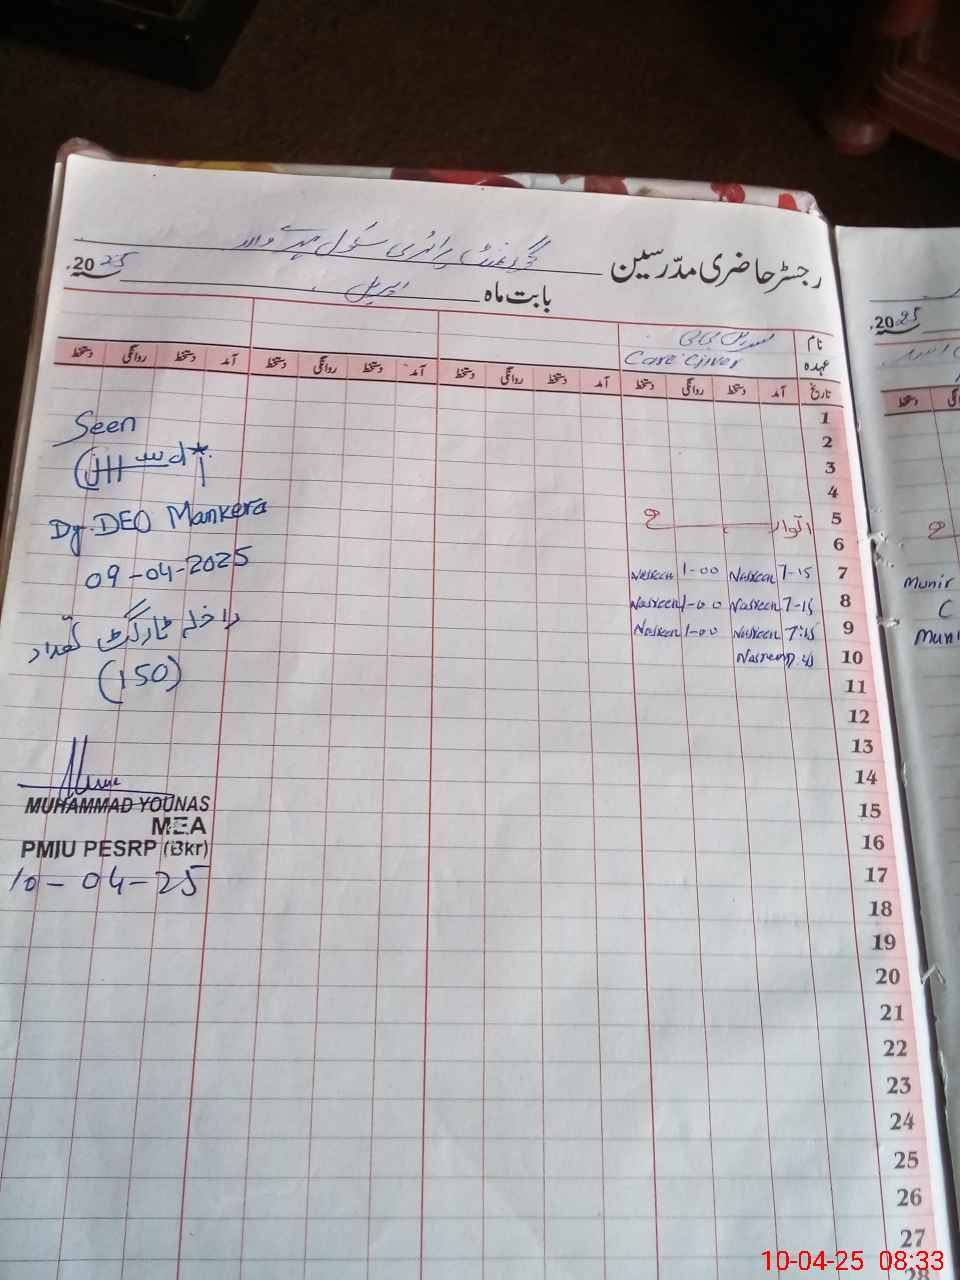 رجسٹر حاضری مدرسین گورنمنٹ پرائمری سکول
بابت ماہ اپریل 2025ء
نام نسرین بی بی
عہدہ Care Giver
تاریخ آمد دستخط روانگی دستخط آمد دستخط روانگی دستخط آمد دستخط روانگی دستخط آمد دستخط روانگی دستخط
1
2
3
4
5
6 اتوار
7 7-15 Nasreen 1-00 Nasreen
8 7-15 Nasreen 1-00 Nasreen
9 7:15 Nasreen 1-00 Nasreen
10 Nasreen
11
12
13
14
15
16
17
18
19
20
21
22
23
24
25
26
27
28
Seen
Dy. DEO Mankera
09-04-2025
داخلہ ٹارگٹ تعداد
(150)
MUHAMMAD YOUNAS
MEA
PMIU PESRP (Bkr)
10-04-25
2025
دستخط
Munir
C
10-04-25 08:33